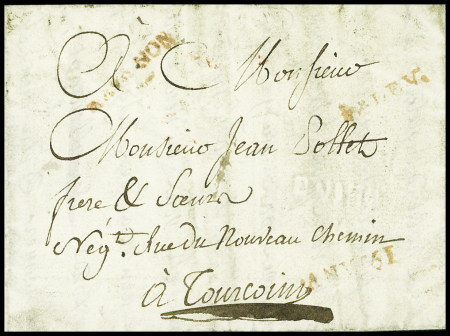 A Monsieur
Monsieur Jean Pollet
frere & Sœurs
Negt. Rue du Nouveau Chemin
à Tourcoin